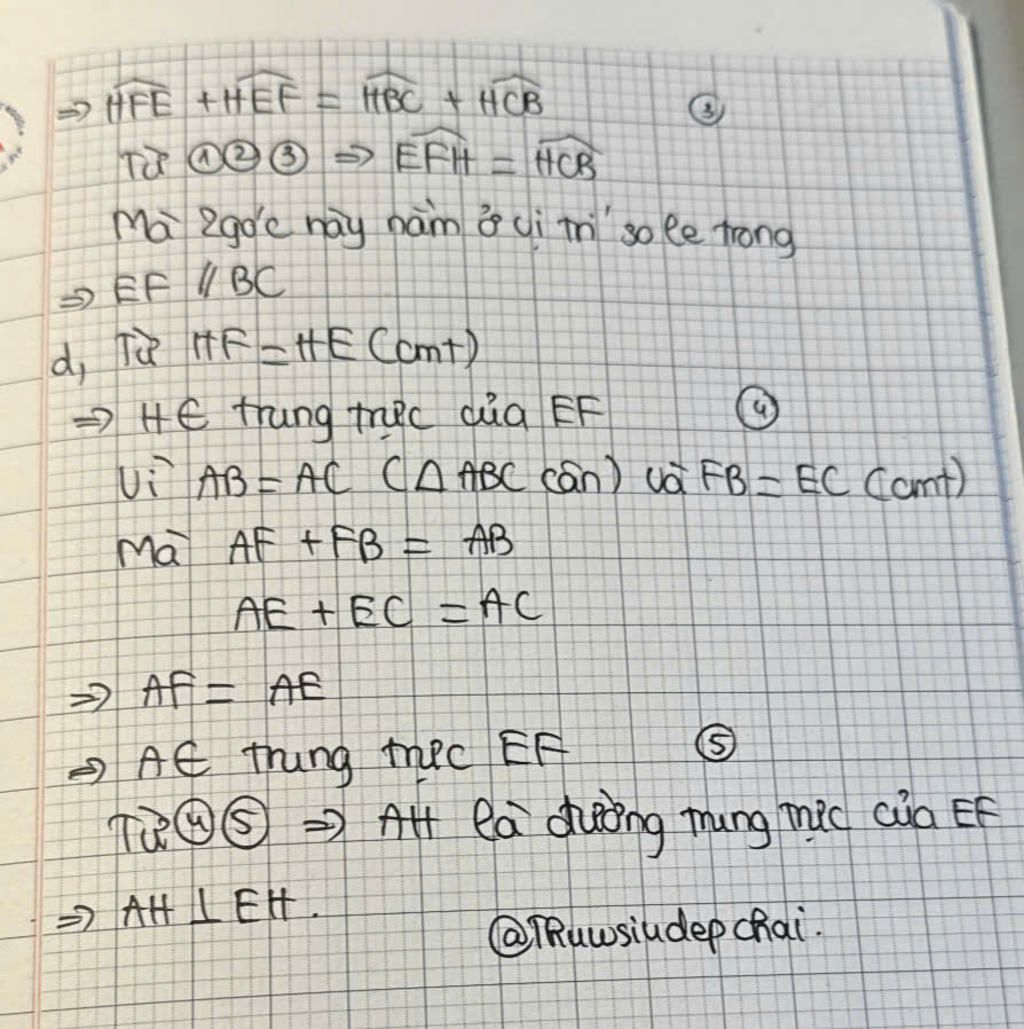 ⇒ HFE + HEF = HBC + HCB ③
Từ ①②③ ⇒ EFH = HCB
Mà 2 góc này nằm ở vị trí so le trong
⇒ EF // BC
d, Từ HF = HE (cmt)
⇒ H ∈ trung trực của EF ④
Vì AB = AC (Δ ABC cân) và FB = EC (cmt)
Mà AF + FB = AB
AE + EC = AC
⇒ AF = AE
⇒ A ∈ trung trực EF ⑤
Từ ④⑤ ⇒ AH là đường trung trực của EF
⇒ AH ⊥ EH.
@TRuwsiudepchai.